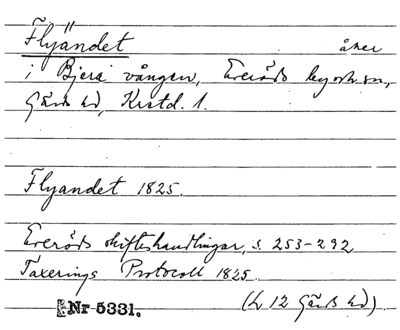 Flyändet åker
i Bjera vången, Everöds by o. sn,
Gärds hd, Kristd. l.
Flyandet 1825.
Everöds skifteshandlingar, s. 253-292
Taxerings Protocoll 1825.
(L 12 Gärds hd).
Nr 5331.